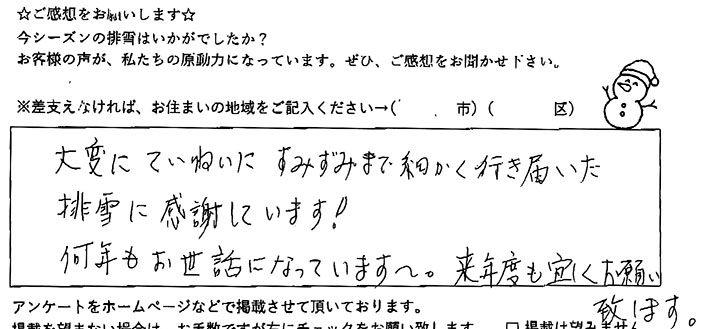 ☆ご感想をお願いします☆
今シーズンの排雪はいかがでしたか？
お客様の声が、私たちの原動力になっています。ぜひ、ご感想をお聞かせ下さい。
※差支えなければ、お住まいの地域をご記入ください→( 市) ( 区)
大変に ていねいに すみずみまで 細かく 行き届いた
排雪に 感謝しています!
何年も お世話になっていますへ。来年度も 宜しく お願い
致します。
アンケートをホームページなどで掲載させて頂いております。
掲載を望まない場合は、お手数ですが右にチェックをお願い致します。 □ 掲載は望みません